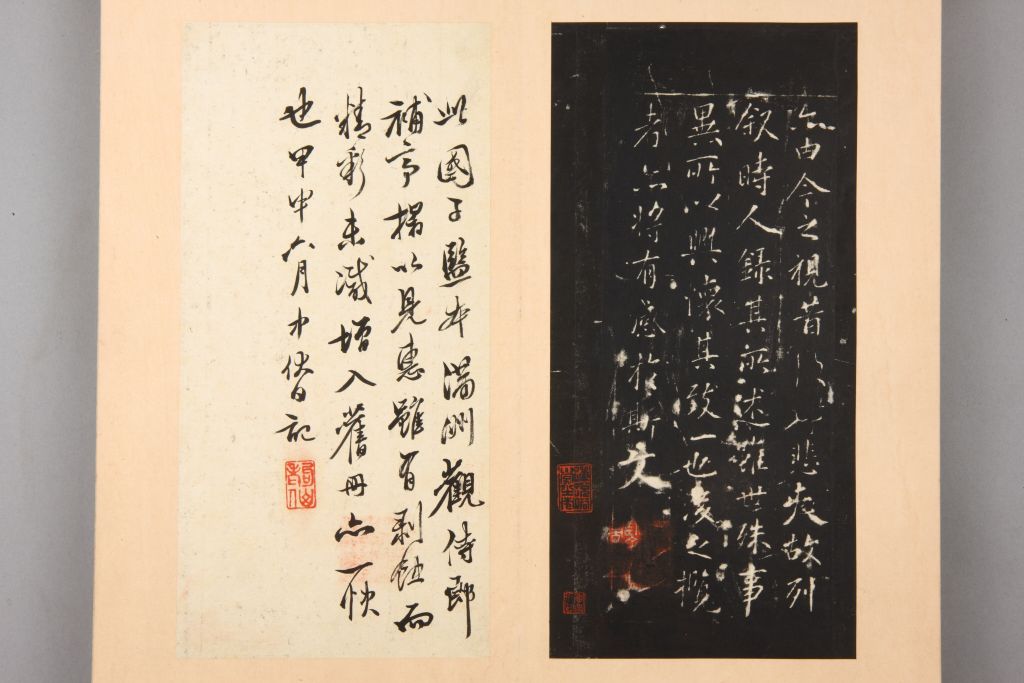 亦由今之視昔悲夫故列
叙時人錄其所述雖世殊事
異所以興懷其致一也後之攬
者亦將有感於斯文
此國子監本滿洲觀侍郎
補亭搨以見惠雖有剥蝕而
精彩未減增入舊冊亦一快
也甲申六月中伏日記